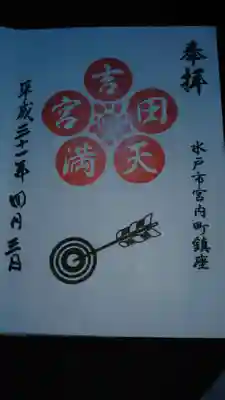 奉拝
水戸市宮内町鎮座
吉田天満宮
平成三十一年四月三日